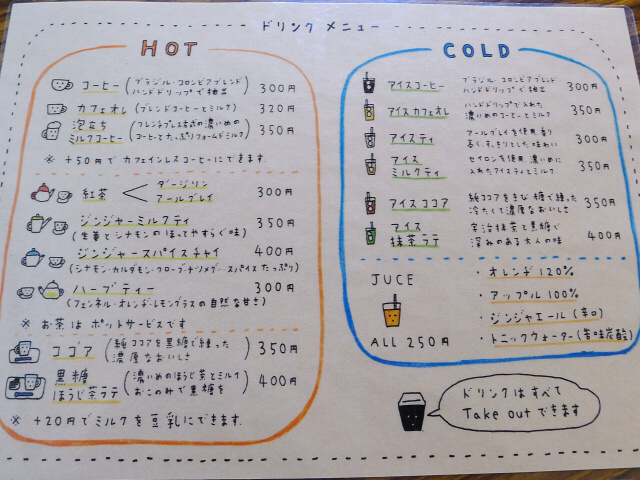 ドリンク メニュー
HOT
コーヒー (ブラジル・コロンビアブレンド ハンドドリップで抽出) 300円
カフェオレ (ブレンドコーヒーとミルク) 320円
泡立ち
ミルクコーヒー (フレンチプレス式の濃いめの コーヒーとたっぷりフォームドミルク) 350円
※ +50円で カフェインレスコーヒーにできます.
紅茶 < ダージリン アールグレイ 300円
ジンジャーミルクティ 350円
(生姜とシナモンのほってやすらぐ味)
ジンジャースパイスチャイ 400円
(シナモン・カルダモン・クローブ・ナツメグ…スパイスたっぷり)
ハーブティー 300円
(フェンネル・オレンジ・レモングラスの自然な甘さ)
※ お茶は ポットサービスです
ココア (純ココアを黒糖で練った 濃厚なおいしさ) 350円
黒糖
ほうじ茶ラテ (濃いめのほうじ茶とミルク おこのみで黒糖を) 400円
※ +20円でミルクを豆乳にできます.
COLD
アイスコーヒー ブラジル・コロンビアブレンド
ハンドドリップで抽出 300円
アイスカフェオレ ハンドドリップで入れた
濃いめのコーヒーとミルク 350円
アイスティ アールグレイを使用 香り
高く、すっきりとした味わい 300円
アイス
ミルクティ セイロンを使用 濃いめに
入れたアイスティとミルク 350円
アイスココア 純ココアをきび糖で練った
冷たくて濃厚なおいしさ 350円
アイス
抹茶ラテ 宇治抹茶と黒糖で
深みのある大人の味 400円
JUCE
ALL 250円
・オレンジ 120%
・アップル 100%
・ジンジャエール (辛口)
・トニックウォーター(苦味炭酸)
ドリンクはすべて
Take out できます